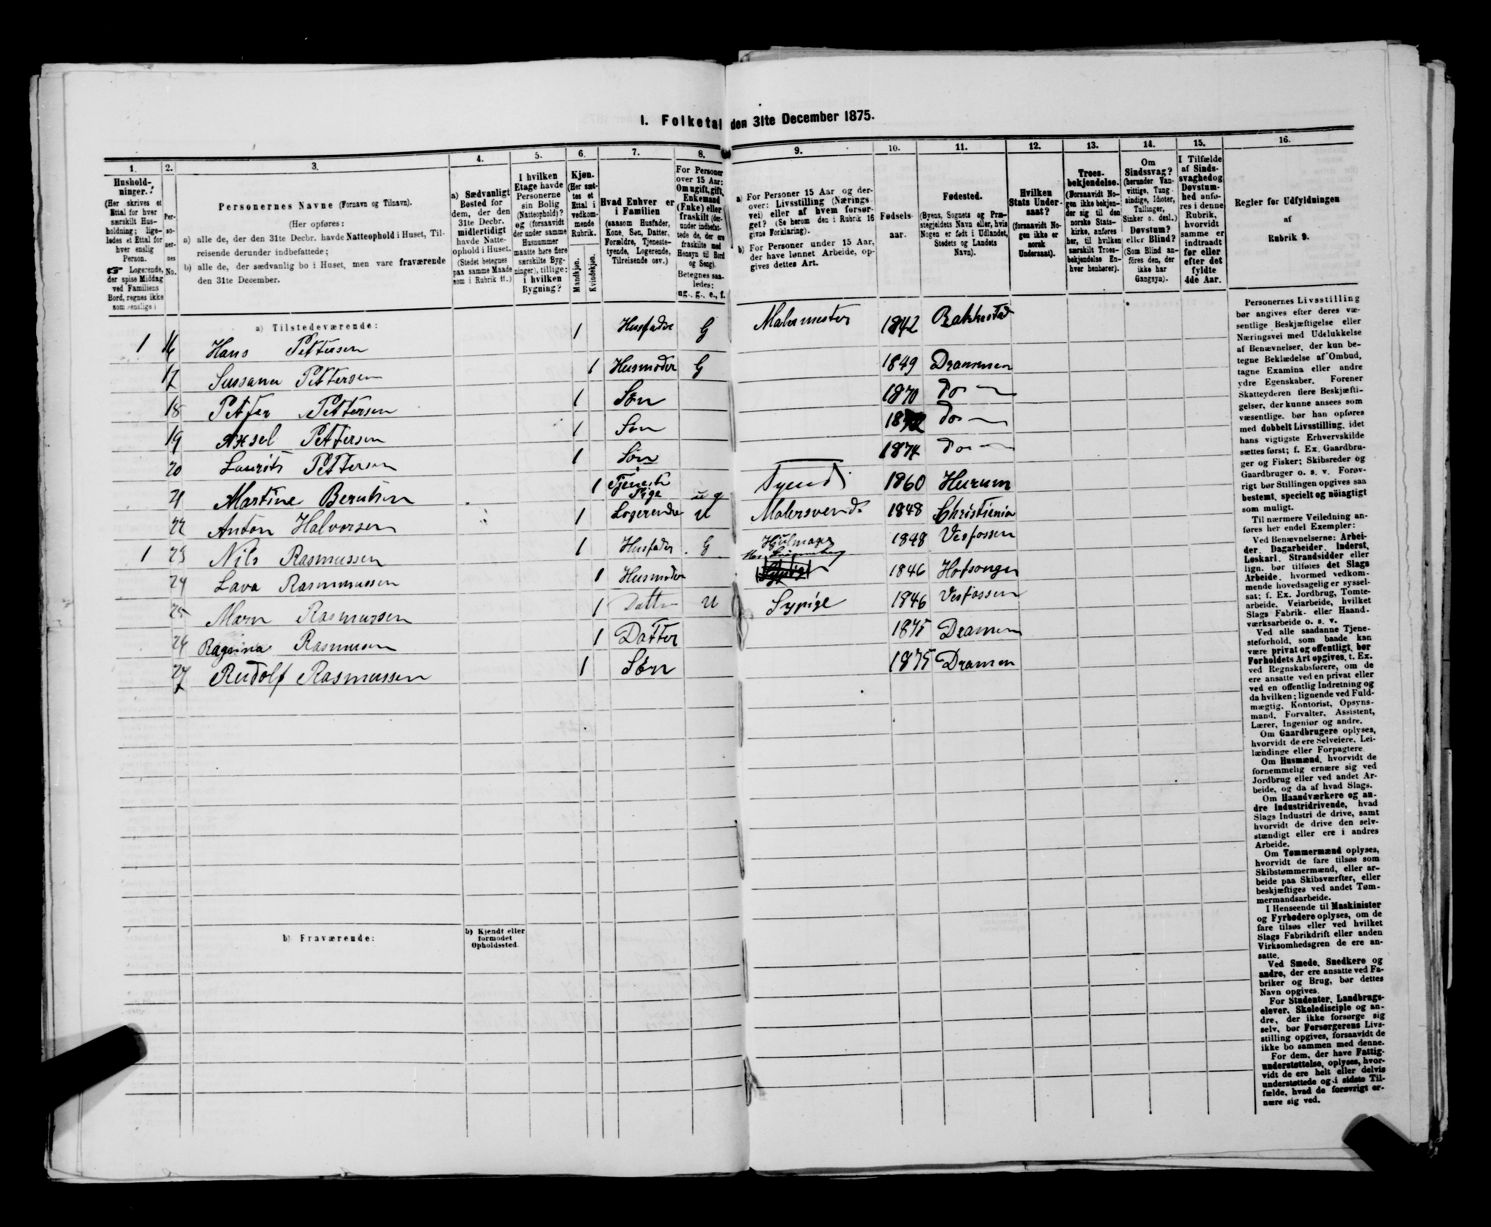 I. Folketal den 31te December 1875.
1. 2. 3. 4. 5. 6. 7. 8. 9. 10. 11. 12. 13. 14. 15. 16.
Hushold-
ninger.
(Her skrives et
Ettal for hver
særskilt Hus-
holdning; lige-
ledes et Ettal for
hver enslig
Person.
☞ Logerende,
der spise Middag
ved Familiens
Bord, regnes ikke
som enslige.)
Per-
so-
ner-
nes
No.
Personernes Navne (Fornavn og Tilnavn).
(Her opføres:
a) alle de, der den 31te Decbr. havde Natteophold i Huset, Til-
reisende derunder indbefattede;
b) alle de, der sædvanlig bo i Huset, men vare fraværende
den 31te December.
a) Sædvanligt
Bosted for
dem, der den
31te Decbr.
midlertidigt
havde Natte-
ophold i Huset.
(Stedet betegnes
paa samme Maade
som i Rubrik 11.)
I hvilken
Etage havde
Personerne
sin Bolig
(Natteophold)?
og (forsaavidt
der under samme
Husnummer
maatte høre flere
særskilte Byg-
ninger), tillige:
i hvilken
Bygning?
Kjøn.
(Her sæt-
tes et
Ettal i
vedkom-
mende
Rubrik.
Mandkjøn.
Kvindekjøn.
Hvad Enhver er
i Familien
(saasom Husfader,
Kone, Søn, Datter,
Forældre, Tjeneste-
tyende, Logerende,
Tilreisende osv.)
For Personer
over 15 Aar:
Om ugift, gift,
Enkemand
(Enke) eller
fraskilt (der-
under indbefat-
tede de, der ere
fraskilte med
Hensyn til Bord
og Seng).
Betegnes saa-
ledes:
ug., g., e., f.
a) For Personer 15 Aar og der-
over: Livsstilling (Nærings-
vei) eller af hvem forsør-
get? (Se herom den i Rubrik 16
givne Forklaring).
b) For Personer under 15 Aar,
der have lønnet Arbeide, op-
gives dettes Art.
Fødsels-
aar.
Fødested.
(Byens, Sognets og Præ-
stegjeldets Navn eller, hvis
Nogen er født i Udlandet,
Stedets og Landets
Navn).
Hvilken
Stats Under-
saat?
(forsaavidt No-
gen ikke er
norsk
Undersaat).
Troes-
bekjendelse.
(Forsaavidt No-
gen ikke bekjen-
der sig til den
norske Stats-
kirke, anføres
her, til hvilken
særskilt Troes-
bekjendelse En-
hver henhører).
Om
Sindssvag?
(herunder Van-
vittige, Tung-
sindige, Idioter,
Tullinger,
Sinker o. desl.)
Døvstum?
eller Blind?
(Som Blind an-
føres den, der
ikke har
Gangsyn).
I Tilfælde
af Sinds-
svaghed og
Døvstum-
hed anfø-
res i denne
Rubrik,
hvorvidt
samme er
indtraadt
før eller
efter det
fyldte
4de Aar.
Regler for Udfyldningen
af
Rubrik 9.
a) Tilstedeværende:
1 16 Hans Pettersen 1 Husfader G Malermester 1842 Bakkestad
17 Sussana Pettersen 1 Husmoder G 1849 Drammen
18 Petter Pettersen 1 Søn 1870 do —
19 Aksel Pettersen 1 Søn 1872 do —
20 Laurits Pettersen 1 Søn 1874 do —
21 Martine Berntsen 1 Tjeneste Pige ug Tyende 1860 Hurum
22 Anton Halvorsen 1 Logerende U Malersvend 1848 Christienia
1 23 Nils Rasmussen 1 Husfader G Hjulmager 1848 Vesfossen
24 Lava Rasmmussen 1 Husmoder 1846 Hofsongen
25 Marn Rasmussen 1 Datter U Sypige 1846 Vesfossen
26 Ragnina Rasmusen 1 Datter 1875 Dramen
27 Rudolf Rasmussen 1 Søn 1875 Dramen
b) Fraværende:
b) Kjendt eller
formodet
Opholdssted.
Personernes Livsstilling
bør angives efter deres væ-
sentlige Beskjæftigelse eller
Næringsvei med Udelukkelse
af Benævnelser, der kun be-
tegne Beklædelse af Ombud,
tagne Examina eller andre
ydre Egenskaber. Forener
Skatteyderen flere Beskjæfti-
gelser, der kunne ansees som
væsentlige, bør han opføres
med dobbelt Livsstilling, idet
hans vigtigste Erhvervskilde
sættes først; f. Ex. Gaardbru-
ger og Fisker; Skibsreder og
Gaardbruger o. s. v. Forøv-
rigt bør Stillingen opgives saa
bestemt, specielt og nøiagtigt
som muligt.
Til nærmere Veiledning an-
føres her endel Exempler:
Ved Benævnelserne: Arbei-
der, Dagarbeider, Inderst,
Løskarl, Strandsidder eller
lign. bør tilføies det Slags
Arbeide, hvormed vedkom-
mende hovedsagelig er syssel-
sat; f. Ex. Jordbrug, Tomte-
arbeide, Veiarbeide, hvilket
Slags Fabrik- eller Haand-
værksarbeide o. s. v.
Ved alle saadanne Tjene-
steforhold, som baade kan
være privat og offentligt, bør
Forholdets Art opgives, t. Ex.
ved Regnskabsførere, om de
ere ansatte ved en privat eller
ved en offentlig Indretning og
da hvilken; lignende ved Fuld-
mægtig, Kontorist, Opsyns-
mand, Forvalter, Assistent,
Lærer, Ingeniør og andre.
Om Gaardbrugere oplyses,
hvorvidt de ere Selveiere, Lei-
lændinge eller Forpagtere.
Om Husmænd, hvorvidt de
fornemmelig ernære sig ved
Jordbrug eller ved andet Ar-
beide, og da af hvad Slags.
Om Haandværkere og an-
dre Industridrivende, hvad
Slags Industri de drive, samt
hvorvidt de drive den selv-
stændigt eller ere i andres
Arbeide.
Om Tømmermænd oplyses,
hvorvidt de fare tilsøs som
Skibstømmermænd, eller ar-
beide paa Skibsværfter, eller
beskjæftiges ved andet Tøm-
mermandsarbeide.
I Henseende til Maskinister
og Fyrbødere oplyses, om de
fare tilsøs eller ved hvilket
Slags Fabrikdrift eller anden
Virksomhedsgren de ere an-
satte.
Ved Smede, Snedkere og
andre, der ere ansatte ved Fa-
briker og Brug, bør dettes
Navn opgives.
For Studenter, Landbrugs-
elever, Skoledisciple og an-
dre, der ikke forsørge sig
selv, bør Forsørgerens Livs-
stilling opgives, forsaavidt de
ikke bo sammen med denne.
For dem, der have Fattig-
understøttelse, oplyses, hvor-
vidt de ere helt eller delvis
understøttede og i sidste Til-
fælde, hvad de forøvrigt er-
nære sig ved.